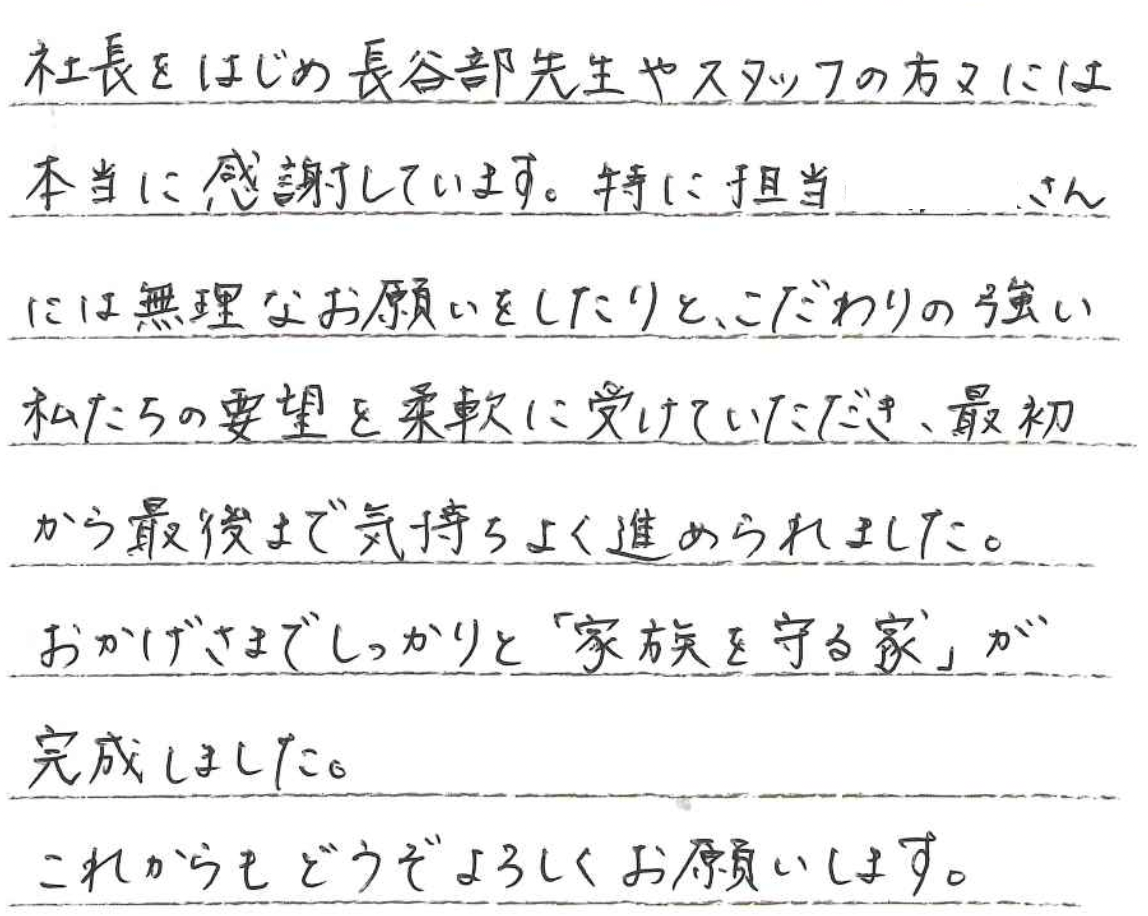 社長をはじめ長谷部先生やスタッフの方々には
本当に感謝しています。特に担当 さん
には無理なお願いをしたりと、こだわりの強い
私たちの要望を柔軟に受けていただき、最初
から最後まで気持ちよく進められました。
おかげさまでしっかりと「家族を守る家」が
完成しました。
これからもどうぞよろしくお願いします。